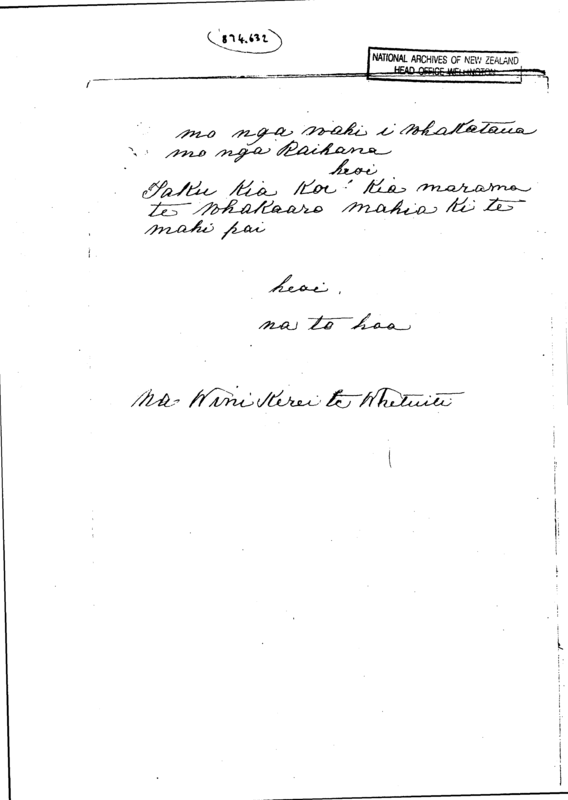 874.632
NATIONAL ARCHIVES OF NEW ZEALAND
HEAD OFFICE WELLINGTON
mo nga wahi i whakataua
mo nga Raihana
heoi
Taku Kia Koe: Kia marama
te whakaaro mahia Ki te
mahi pai
heoi.
na to hoa
Na Wini Kerei te Whetuiti